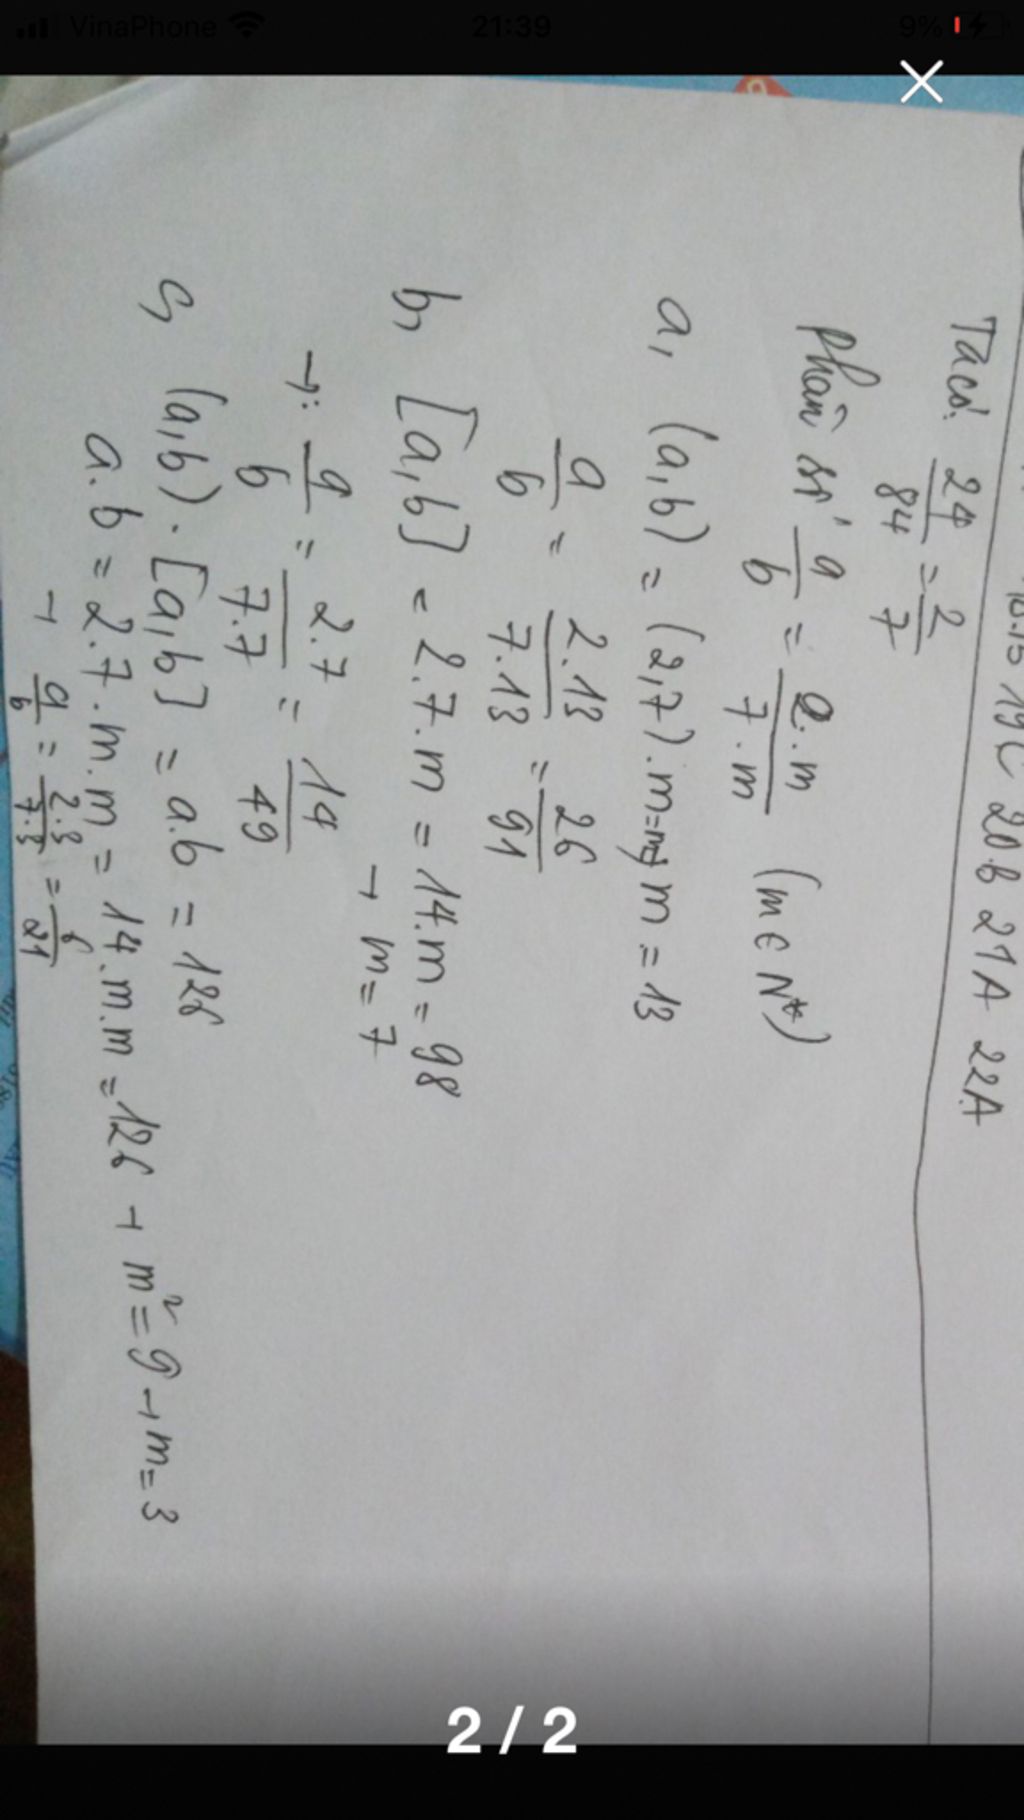 VinaPhone 21:39 9%
18.B 19C 20B 21A 22A
Ta có: 24/84 = 2/7
Phân số a/b = 2.m/7.m (m ∈ N*)
a, (a,b) = (2,7).m = m → m = 13
a/b = 2.13/7.13 = 26/91
b, [a,b] = 2.7.m = 14.m = 98
→ m = 7
→: a/b = 2.7/7.7 = 14/49
c, (a,b).[a,b] = a.b = 126
a.b = 2.7.m.m = 14.m.m = 126 → m² = 9 → m = 3
→ a/b = 2.3/7.3 = 6/21
2 / 2